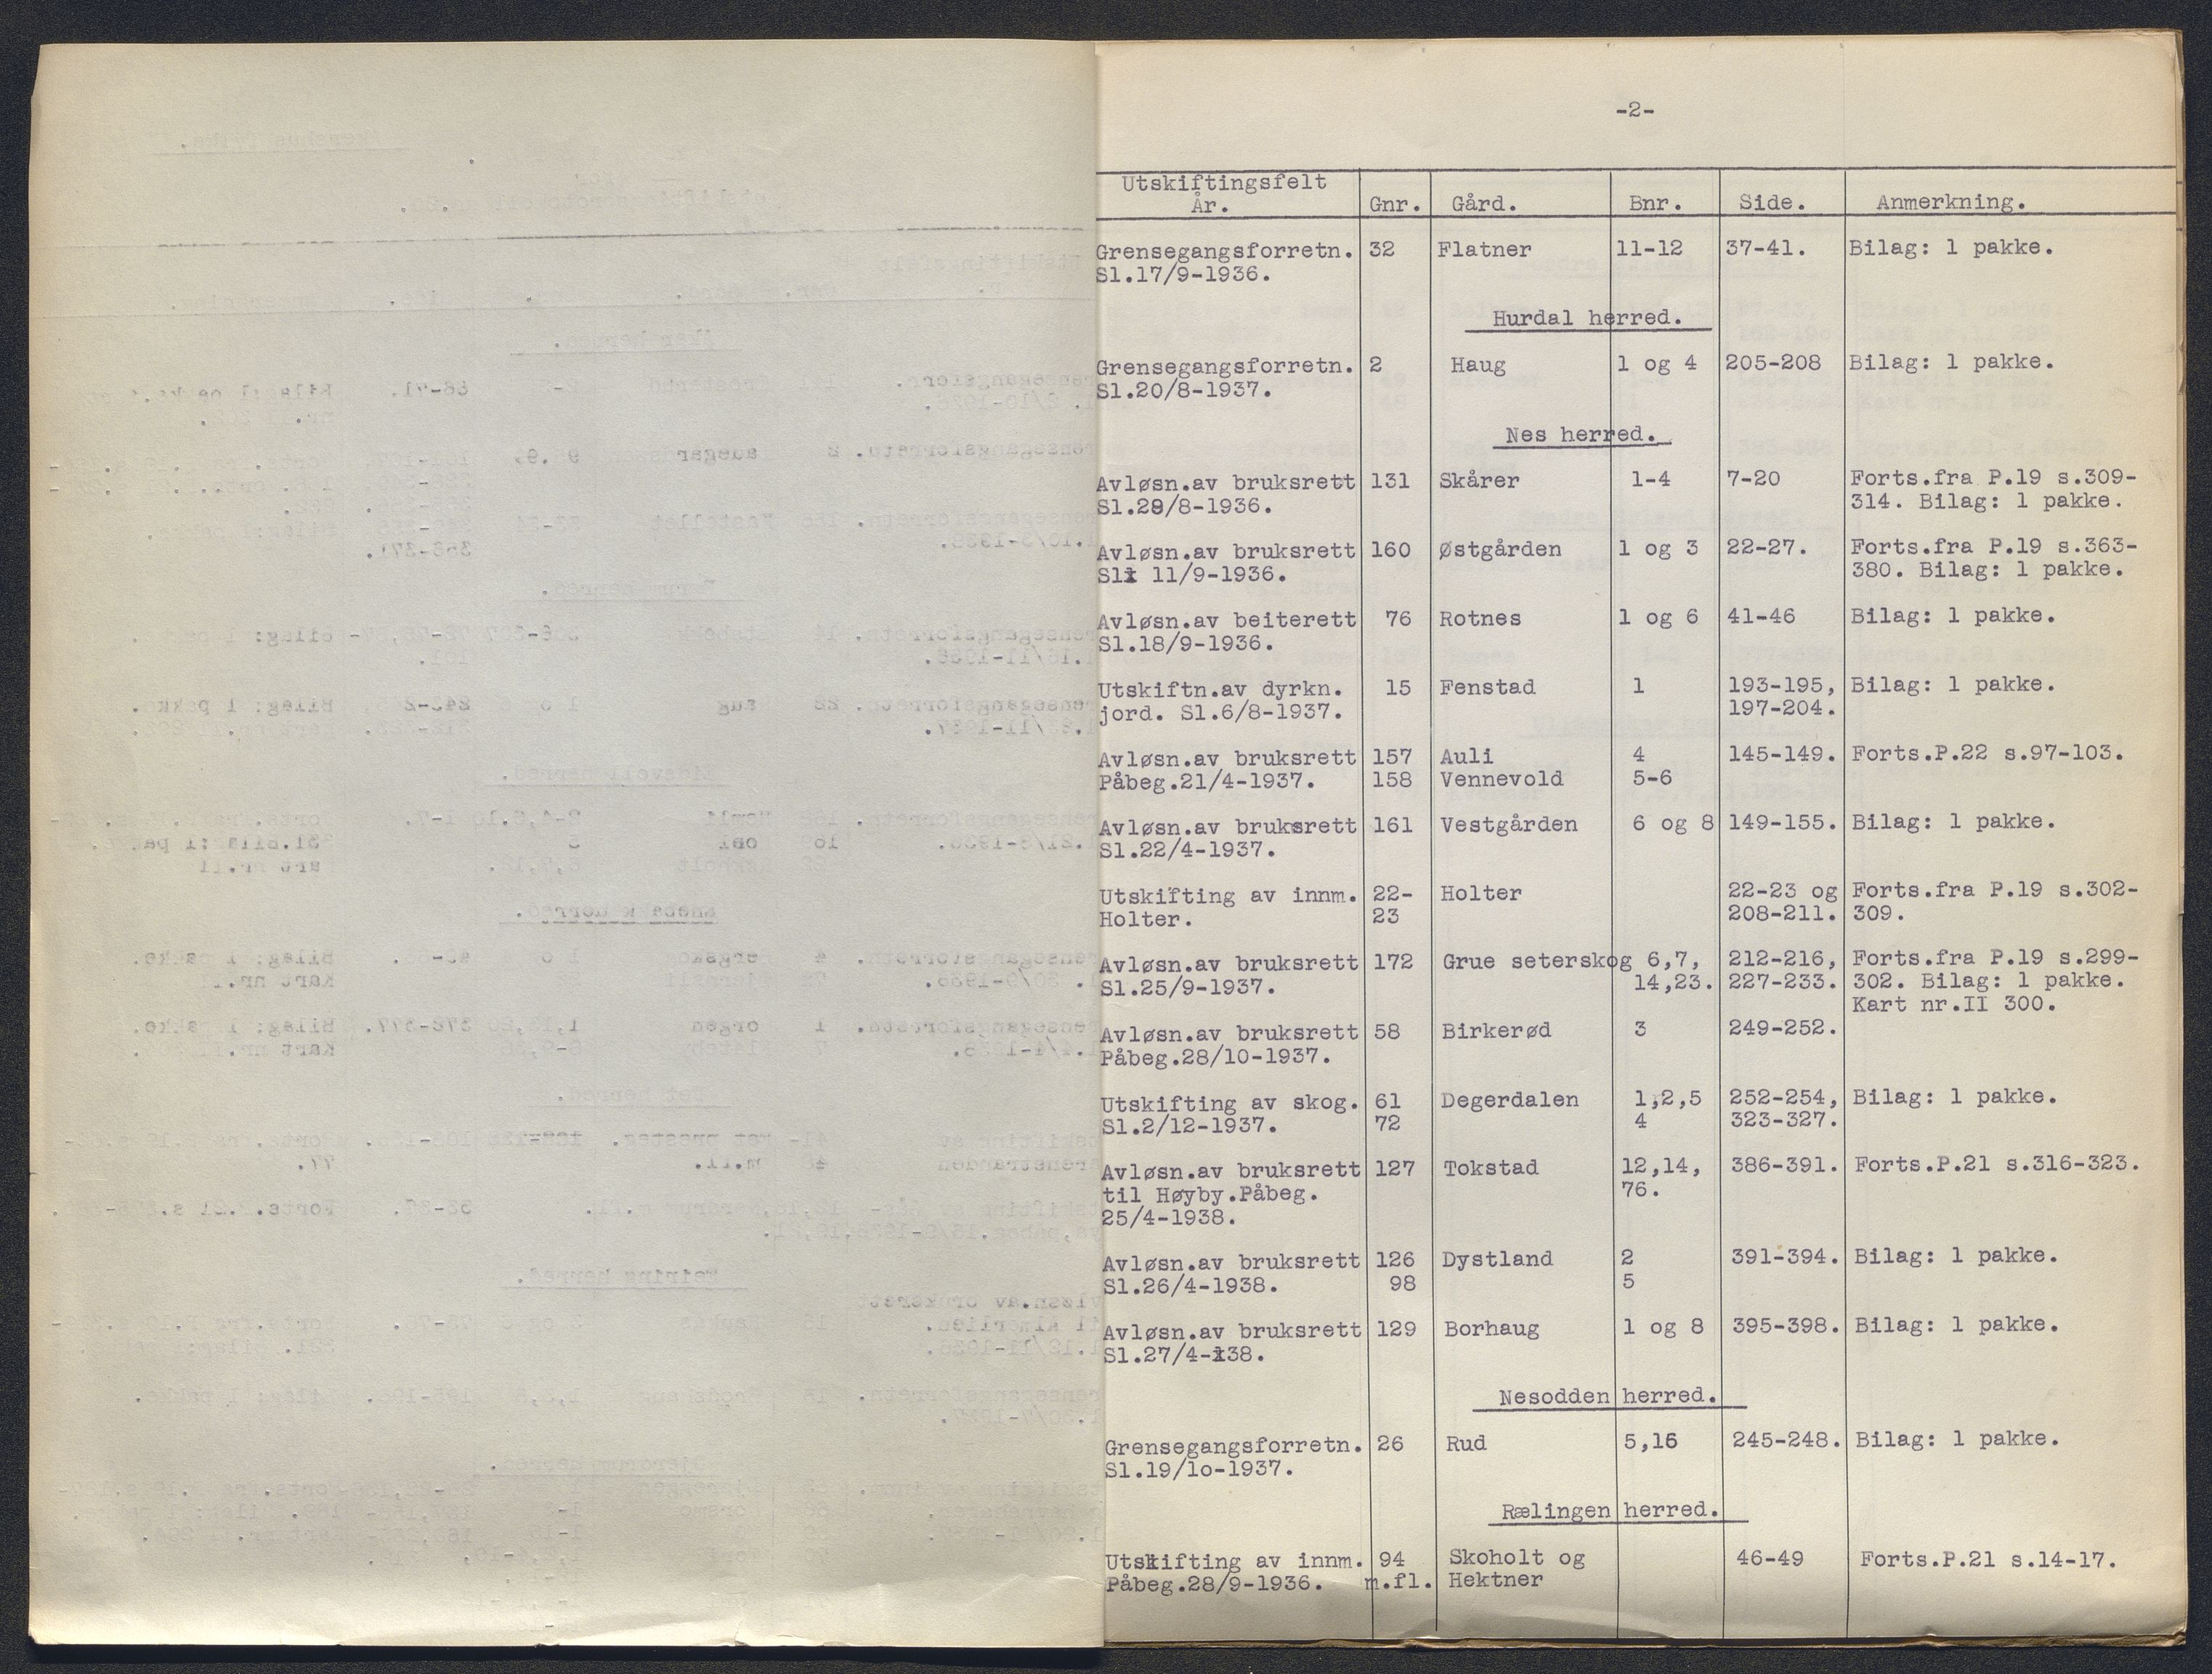 -2-
Utskiftingsfelt År. Gnr. Gård. Bnr. Side. Anmerkning.
Grensegangsforretn. 32 Flatner 11-12 37-41. Bilag: 1 pakke.
Sl.17/9-1936.
Hurdal herred.
Grensegangsforretn. 2 Haug 1 og 4 205-208 Bilag: 1 pakke.
Sl.20/8-1937.
Nes herred.
Avløsn.av bruksrett 131 Skårer 1-4 7-20 Forts.fra P.19 s.309-
Sl.29/8-1936. 314. Bilag: 1 pakke.
Avløsn.av bruksrett 160 Østgården 1 og 3 22-27. Forts.fra P.19 s.363-
Sl. 11/9-1936. 380. Bilag: 1 pakke.
Avløsn.av beiterett 76 Rotnes 1 og 6 41-46 Bilag: 1 pakke.
Sl.18/9-1936.
Utskiftn.av dyrkn. 15 Fenstad 1 193-195, Bilag: 1 pakke.
jord. Sl.6/8-1937. 197-204.
Avløsn.av bruksrett 157 Auli 4 145-149. Forts.P.22 s.97-103.
Påbeg.21/4-1937. 158 Vennevold 5-6
Avløsn.av bruksrett 161 Vestgården 6 og 8 149-155. Bilag: 1 pakke.
Sl.22/4-1937.
Utskifting av innm. 22- Holter 22-23 og Forts.fra P.19 s.302-
Holter. 23 208-211. 309.
Avløsn.av bruksrett 172 Grue seterskog 6,7, 212-216, Forts.fra P.19 s.299-
Sl.25/9-1937. 14,23. 227-233. 302. Bilag: 1 pakke.
Kart nr.II 300.
Avløsn.av bruksrett 58 Birkerød 3 249-252.
Påbeg.28/10-1937.
Utskifting av skog. 61 Degerdalen 1,2,5 252-254, Bilag: 1 pakke.
Sl.2/12-1937. 72 4 323-327.
Avløsn.av bruksrett 127 Tokstad 12,14, 386-391. Forts.P.21 s.316-323.
til Høyby.Påbeg. 76.
25/4-1938.
Avløsn.av bruksrett 126 Dystland 2 391-394. Bilag: 1 pakke.
Sl.26/4-1938. 98 5
Avløsn.av bruksrett 129 Borhaug 1 og 8 395-398. Bilag: 1 pakke.
Sl.27/4-138.
Nesodden herred.
Grensegangsforretn. 26 Rud 5,16 245-248. Bilag: 1 pakke.
Sl.19/1o-1937.
Rælingen herred.
Utskifting av innm. 94 Skoholt og 46-49 Forts.P.21 s.14-17.
Påbeg.28/9-1936. m.fl. Hektner